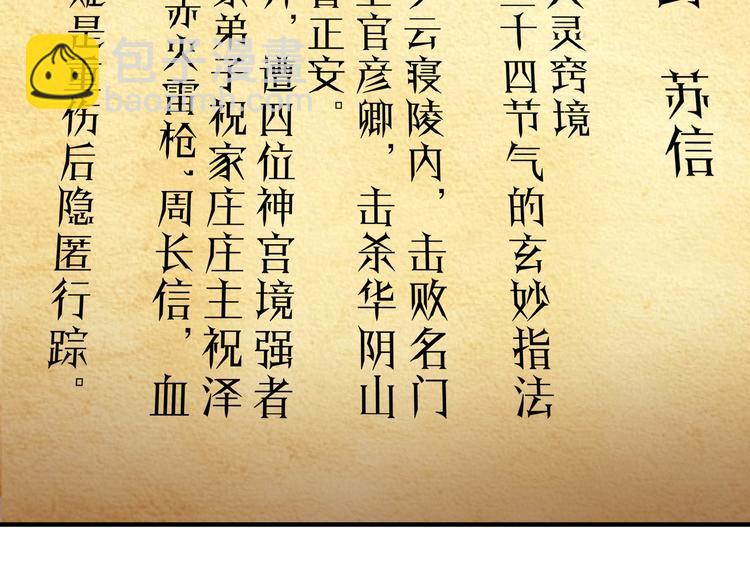 苏信
灵窍境
十四节气的玄妙指法
云寝陵内，击败名门
官彦卿，击杀华阴山
正安。
遭四位神宫境强者
弟子祝家庄庄主祝泽
雷枪、周长信，血
伤后隐匿行踪。
包子漫畫
baozimh.com